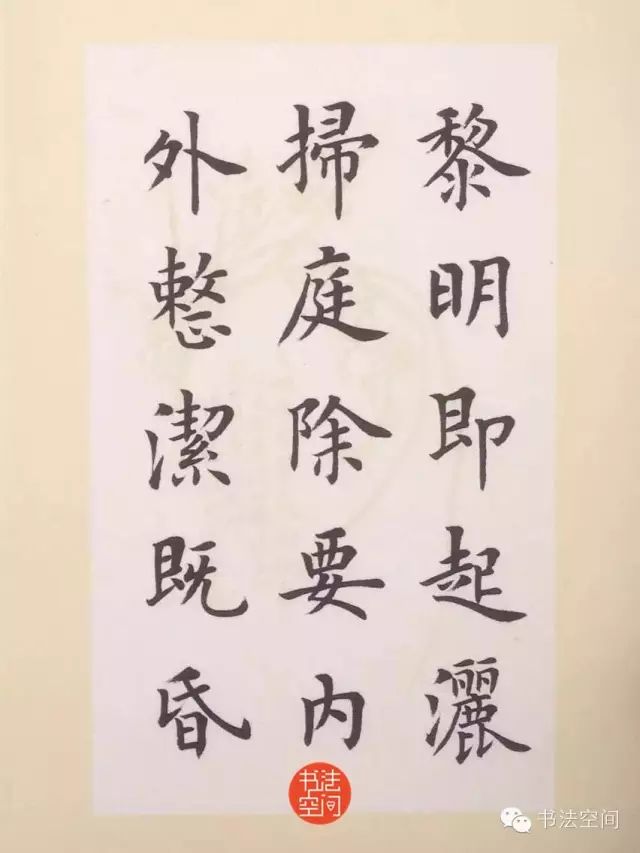 黎明即起灑
掃庭除要内
外整潔既昏
书法空间
书法空间